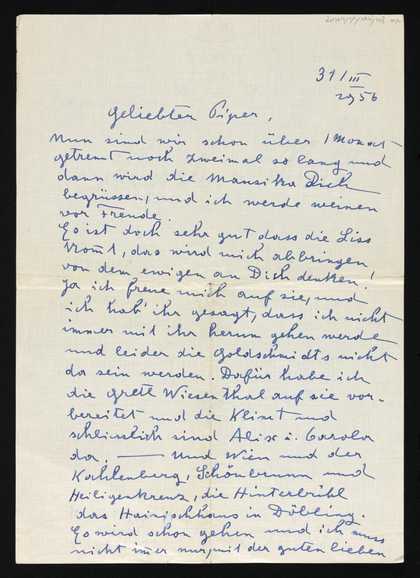 31/III
1956
Geliebter Piper,
Nun sind wir schon über 1 Monat
getrennt noch zweimal so lang und
dann wird die Mausika Dich
begrüssen, und ich werde weinen
vor Freude.
Es ist doch sehr gut dass die Liss
kom̄t, das wird mich abbringen
von dem ewigen an Dich denken!
Ja ich freue mich auf sie, und
ich hab' ihr gesagt, dass ich nicht
immer mit ihr herum gehen werde
und leider die Goldschmidts nicht
da sein werden. Dafür habe ich
die Gretl Wiesenthal auf sie vor-
bereitet und die Klimt und
schliesslich sind Alix u. Carola
da. — Und Wien und der
Kahlenberg, Schönbrunn und
Heiligenkreuz, die Hinterbrühl
das Hainischhaus in Döbling.
Es wird schon gehen und ich muss
nicht im̄er nur mit der guten lieben